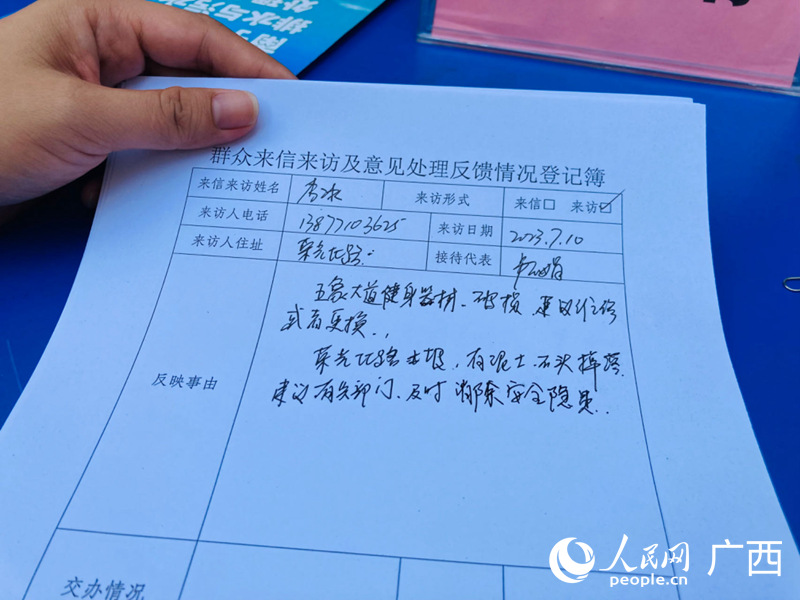 排水与污水
处理
群众来信来访及意见处理反馈情况登记簿
来信来访姓名 来访形式 来信□ 来访☑
来访人电话 13877103625 来访日期 2023.7.10
来访人住址 接待代表
反映事由
五象大道健身器材、破损、建议维修
或者更换.,
有泥土、石头掉落.
建议有关部门、及时消除安全隐患.
交办情况
人民网 广西
people.cn